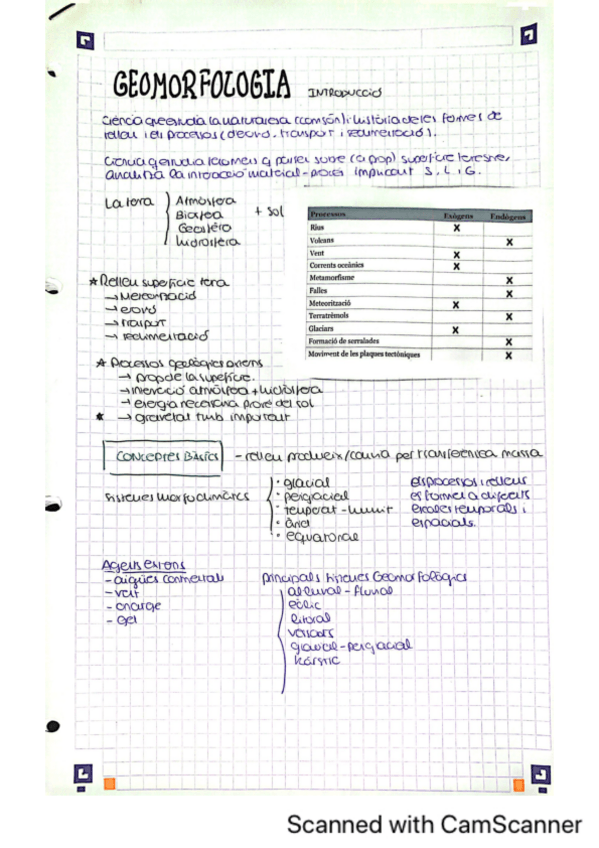 GEOMORFOLOGIA INTRODUCCIÓ
Ciència que estudia la naturalesa (com són) i història de les formes de
relleu i els processos (erosió, transport i sedimentació).
Ciència que estudia fenòmens q passen sobre (a prop) superfície terrestre,
Analitza la interacció material-procés important S, L i G.
La terra
Atmosfera
Biosfera + sol
Geosfera
hidrosfera
Processos Exògens Endògens
Rius X
Volcans X
Vent X
Corrents oceànics X
Metamorfisme X
Falles X
Meteorització X
Terratrèmols X
Glaciars X
Formació de serralades X
Moviment de les plaques tectòniques X
* Relleu superfície terra
→ Meteorització
→ erosió
→ transport
→ sedimentació
* Processos geològics externs
→ prop de la superfície.
→ interacció atmosfera + hidrosfera
→ energia necessària prové del sol
* → gravetat molt important
CONCEPTES BÀSICS - relleu produeix/canvia per transferència massa
Sistemes morfoclimàtics
· glacial
· periglacial
· temperat - humit
· àrid
· equatorial
els processos i relleus
es formen a diferents
escales temporals i
espacials.
Agents externs
- aigües continentals
- vent
- onatge
- gel
principals sistemes Geomorfològics
al·luvial - fluvial
eòlic
litoral
vessants
glacial - periglacial
kàrstic
Scanned with CamScanner